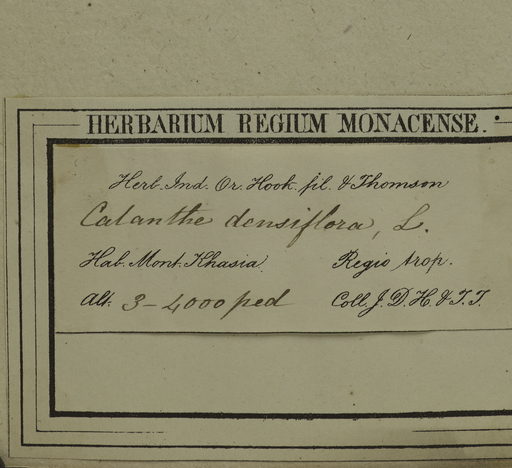 HERBARIUM REGIUM MONACENSE.
Herb. Ind. Or. Hook. fil. & Thomson
Calanthe densiflora, L.
Hab. Mont. Khasia. Regio trop.
Alt. 3-4000 ped Coll. J. D. H. & T. T.